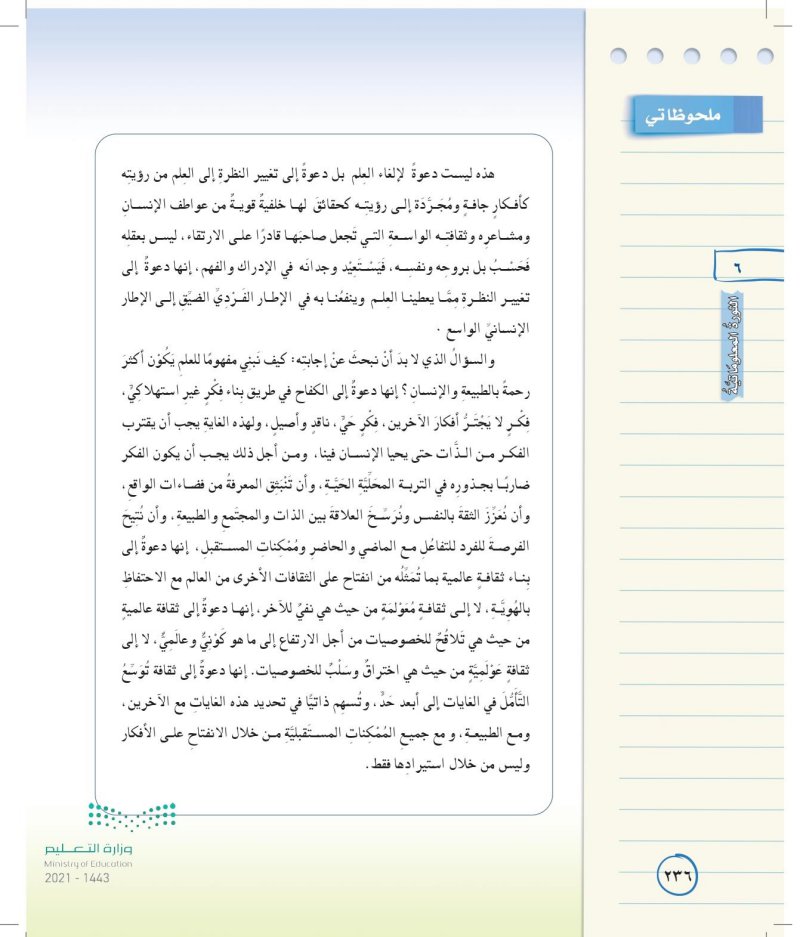 ملحوظاتي
٦
الثورةُ المعلوماتيَّةُ
هذه ليست دعوةً لإلغاء العِلم بل دعوةٌ إلى تغيير النظرةِ إلى العِلم من رؤيتِه
كأفـكـارٍ جافـةٍ ومُجَـرَّدَة إلـى رؤيتِـه كحقائقَ لهـا خلفيةٌ قويـةٌ من عواطف الإنسـانِ
ومشـاعرِه وثقافتِـه الواسـعةِ التـي تَجعل صاحبَهـا قادرًا علـى الارتقاء، ليـس بعقلِه
فَحَسْبُ بل بروحِه ونفسِـه، فَيَسْتَعِيْد وجدانَه في الإدراك والفهم، إنها دعوةٌ إلى
تغييـر النظـرةِ مِمَّا يعطينا العِلـم وينفعُنا به في الإطـار الفَـرْديِّ الضيّقِ إلـى الإطار
الإنسانيِّ الواسع .
والسؤالُ الذي لا بدَ أنْ نبحثَ عنْ إجابتِه: كيف نَبنِي مفهومًا للعلمِ يَكُوْن أكثرَ
رحمةً بالطبيعةِ والإنسانِ؟ إنها دعوةٌ إلى الكفاح في طريق بناء فِكْرٍ غيرِ استهلاكِيٍّ،
فِكْـرٍ لا يَجْتَـرُّ أفكارَ الآخرين، فِكْرٍ حَيٍّ، ناقدٍ وأصيلٍ، ولهذه الغايةِ يجب أن يقترب
الفكـر مـن الـذَّات حتى يحيا الإنسـان فينا، ومـن أجل ذلك يجـب أن يكون الفكر
ضاربًـا بجذورِه في التربـة المحَلِّيَّةِ الحَيَّـةِ، وأن تَنْبَثِق المعرفةُ من فضـاءات الواقعِ،
وأن نُعَزِّزَ الثقة بالنفـس ونُرَسِّـخَ العلاقةَ بين الذات والمجتَمعِ والطبيعةِ، وأن نُتِيحَ
الفرصـةَ للفرد للتفاعُلِ مـع الماضي والحاضرِ ومُمْكِناتِ المسـتقبلِ، إنهـا دعوةٌ إلى
بِناء ثقافـةٍ عالمية بما تُمَثِّلُه من انفتاح على الثقافات الأخرى من العالم مع الاحتفاظِ
بالهُوِيَّـةِ، لا إلـى ثقافـةٍ مُعَوْلمَةٍ من حيث هي نفيٌ للآخر، إنهـا دعوةٌ إلى ثقافة عالميةٍ
من حيث هي تَلاقُحٌ للخصوصيات من أجل الارتفاع إلى ما هو كَوْنِيٌّ وعالَمِيٌّ، لا إلى
ثقافةٍ عَوْلَمِيَّةٍ من حيث هي اختراقٌ وسَلْبٌ للخصوصيات. إنها دعوةٌ إلى ثقافة تُوَسِّعُ
التَّأمُّلَ في الغايات إلى أبعد حَدٍّ، وتُسهِم ذاتيًّا في تحديد هذه الغاياتِ مع الآخرين،
ومـع الطبيعـةِ، و مع جميـعِ المُمْكِناتِ المسـتَقبليَّةِ مـن خلال الانفتاحِ علـى الأفكار
وليس من خلال استيرادِها فقط.
وزارة التعـليم
Ministry of Education
2021 - 1443
٢٣٦